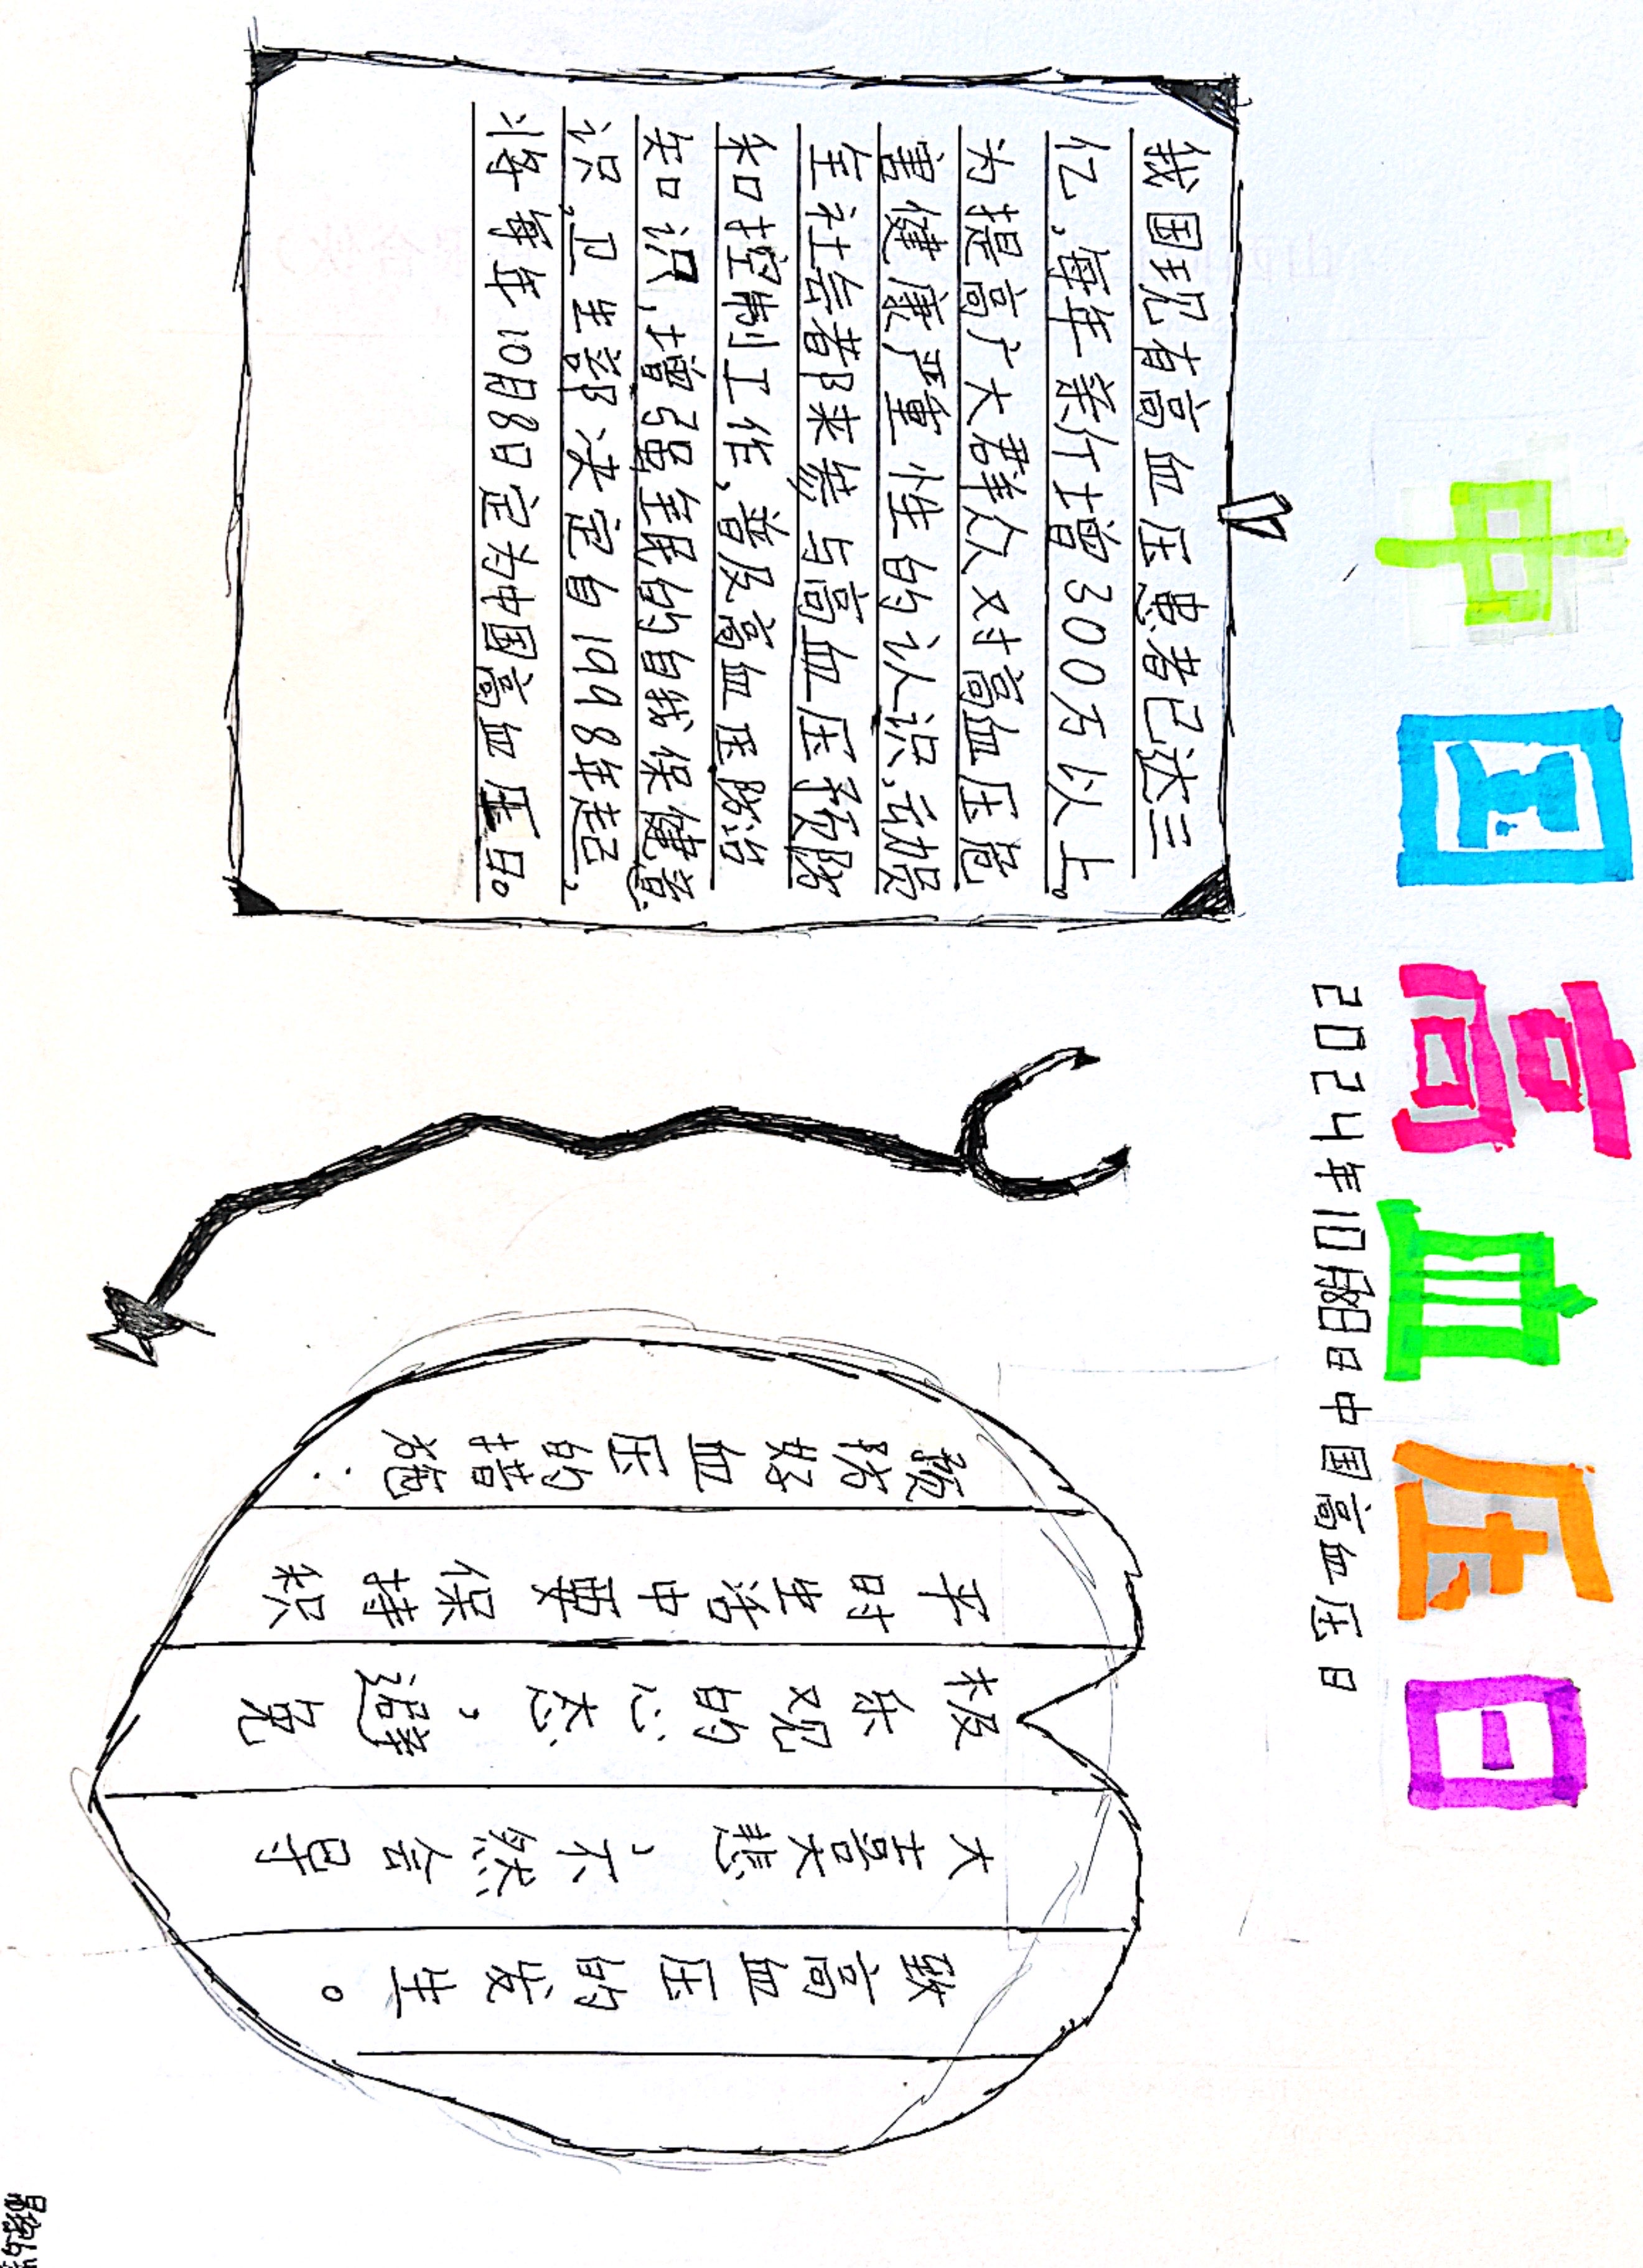 中国高血压日
2024年10月8日中国高血压日
我国现有高血压患者已达三
亿,每年新增300万以上。
为提高广大群众对高血压危
害健康严重性的认识,动员
全社会都来参与高血压预防
和控制工作,普及高血压防治
知识,增强全民的自我保健意
识,卫生部决定自1998年起,
将每年10月8日定为中国高血压日。
预防好血压的措施:
平时生活中要保持积
极乐观的心态,避免
大喜大悲,不然会导
致高血压的发生。